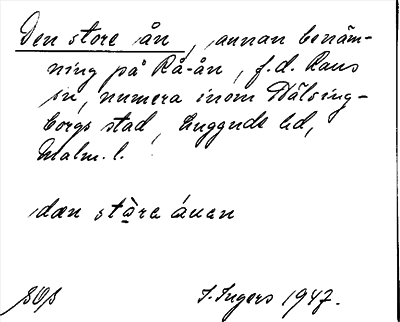 Den store ån, annan benäm-
ning på Rå-ån, f.d. Raus
sn, numera inom Hälsing-
borgs stad, Luggude hd,
Malm. l.
dæn stǡra áuen
SOS I. Ingers 1947.